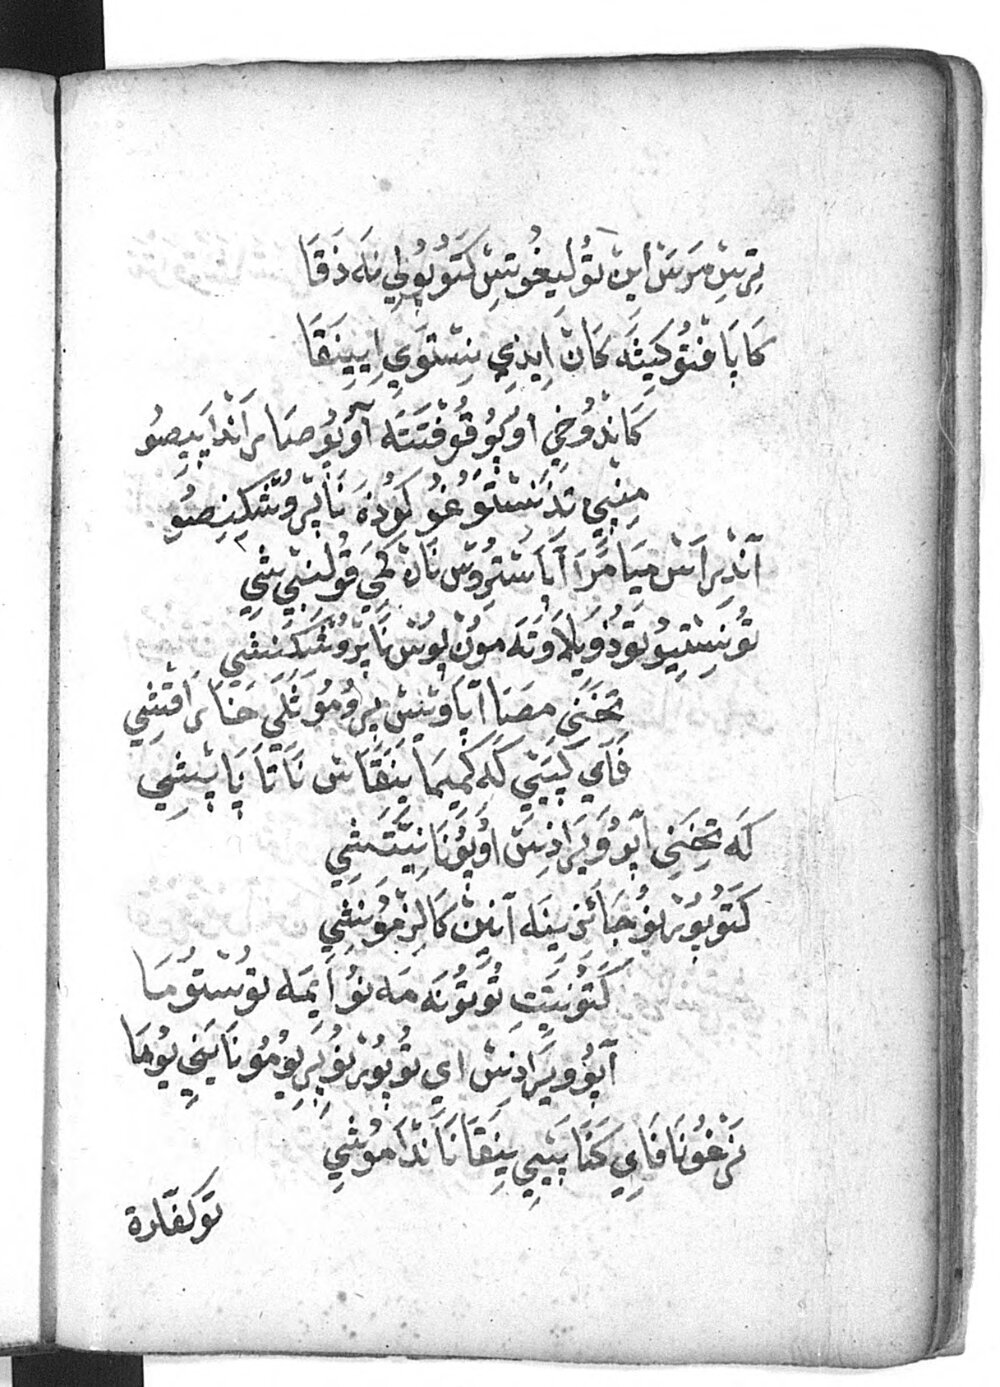 تِرِسْ مَرَسْ اينْ تُولِيغُوتِسْ كَتُوبُولِي نَه ذَقَا
كَابَا فْتُو كِيثَه كَانْ اِيذِي نِسْتَوِي اِيِينَقَا
كَانْدُوخِي اوكِبُوقُوفْتَتَه آوُبُوصَا رَانْدَا بِيصُو
مِنْبِي تِذَنَسْتُو غُوكَوُذَه نَابْرُوشْكِنِصُو
آنْذِرَاسْ مِيَامَرَا آبَاسْتُرُوسْ نَانْ كَمِي قُولْنِبِشِي
تُونِسْتِيُو تَوُذُو يَلَاوُتَه مُونْ بُوسْ نَابْرُوشْكَنِشِي
تِخَنَنِ مِصَا آبَاوْتِيسْ بِرُومُو ثَلِي حَتَا رَاقْتِشِي
فَايِ كَبِيَتِي كَه كَمِيمَا يِنَقَاسْ نَاتَا بَابِتِشِي
كَه تِخَنِنِ آبُو وَيَرَاذِسْ اَوُبُونَا نِيَتَشِي
كَتُوبُورْنُو جَاثَزِينَه آنِينْ كَالِزْمُونِشِي
كَتُونِيَتِ تُوتُونَه مَه نُو اَيمَه تُوسْتُومَا
آبُو وَيَرَاذِسْ اي تُوبُورْنُو بِرِيُومُونَا يَنِي يُومَا
نَرْغُونَا فَايِي كَنَا بَتِيِي يِنَقَانَا نْدَامُوشِي
تَوكَفّارة